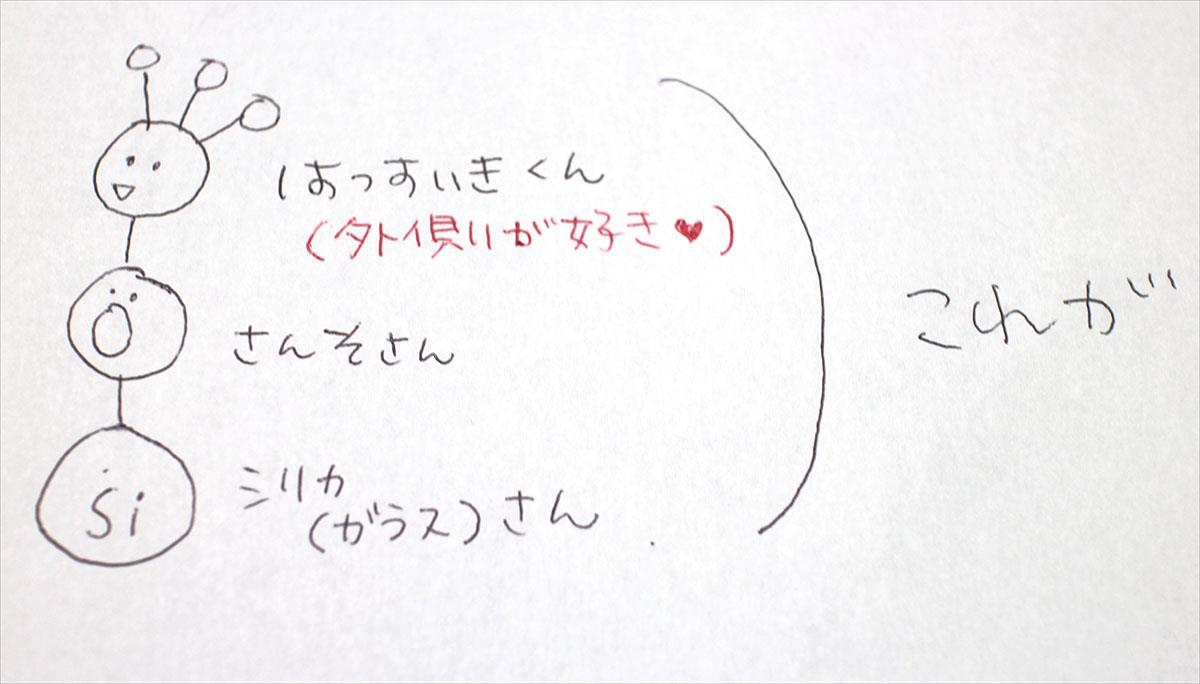 はっすいきくん
(外側が好き♥)
O
さんそさん
Si
シリカ
(ガラス)さん
これが